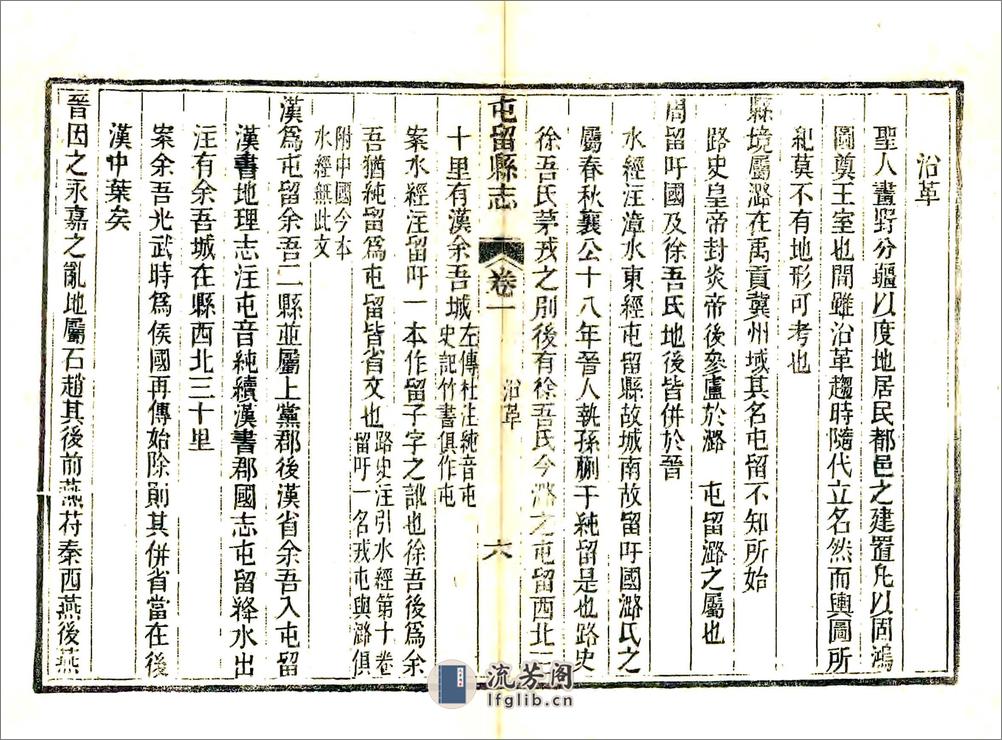 沿革
聖人畫野分疆以度地居民都邑之建置凡以固鴻
圖奠王室也間雖沿革趨時隨代立名然而輿圖所
紀莫不有地形可考也
縣境屬潞在禹貢冀州域其名屯留不知所始
路史皇帝封炎帝後參盧於潞 屯留潞之屬也
周留吁國及徐吾氏地後皆併於晉
水經注漳水東經屯留縣故城南故留吁國潞氏之
屬春秋襄公十八年晉人執孫蒯于純留是也路史
徐吾氏茅戎之別後有徐吾氏今潞之屯留西北三
屯留縣志 卷一 沿革 六
十里有漢余吾城左傳杜注純音屯
史記竹書俱作屯
案水經注留吁一本作留子字之訛也徐吾後爲余
吾猶純留爲屯留皆省文也路史注引水經第十卷
留吁一名戎屯與潞俱
附中國今本
水經無此文
漢爲屯留余吾二縣並屬上黨郡後漢省余吾入屯留
漢書地理志注屯音純續漢書郡國志屯留絳水出
注有余吾城在縣西北三十里
案余吾光武時爲侯國再傳始除則其併省當在後
漢中葉矣
晉因之永嘉之亂地屬石趙其後前燕苻秦西燕後燕
流芳阁
lfglib.cn